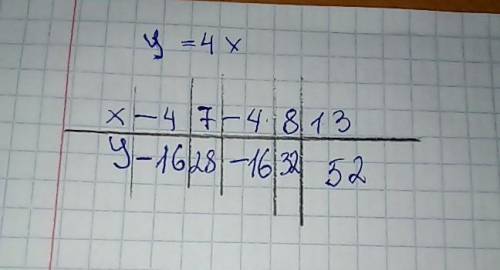 y = 4x
x -4 7 -4 8 13
y -16 28 -16 32 52